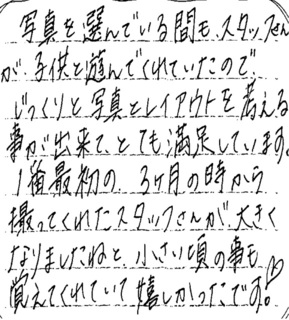 写真を選んでいる間も、スタッフさん
が、子供と遊んでくれていたので、
じっくりと写真とレイアウトを考える
事が出来て、とても満足しています。
1番最初の、3ヶ月の時から
撮ってくれたスタッフさんが、大きく
なりましたねと、小さい頃の事も
覚えてくれていて嬉しかったです。♡